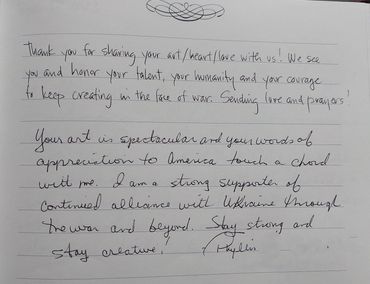 Thank you for sharing your art/heart/love with us! We see
you and honor your talent, your humanity and your courage
to keep creating in the face of war. Sending love and prayers!
Your art is spectacular and your words of
appreciation to America touch a chord
with me. I am a strong supporter of
continued alliance with Ukraine through
the war and beyond. Stay strong and
stay creative!